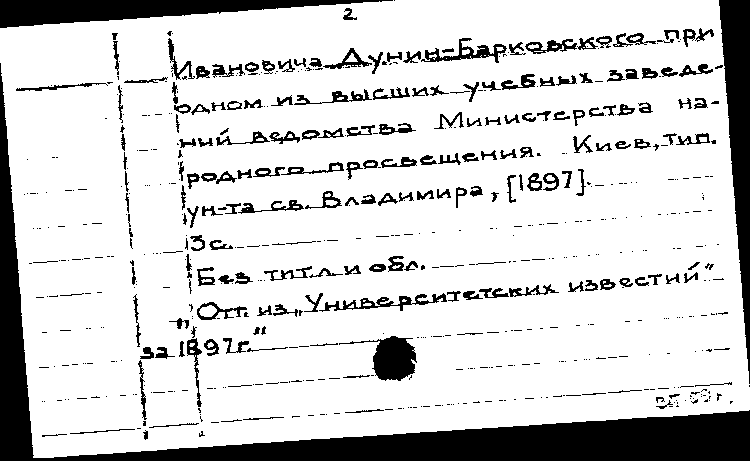 2.
Ивановича Дунин-Барковского при
одном из высших учебных заведе-
ний ведомства Министерства на-
родного просвещения. Киев, тип.
ун-та св. Владимира, [1897].
3 с.
Без тит. л и обл.
„Отт. из „Университетских известий"
за 1897 г."